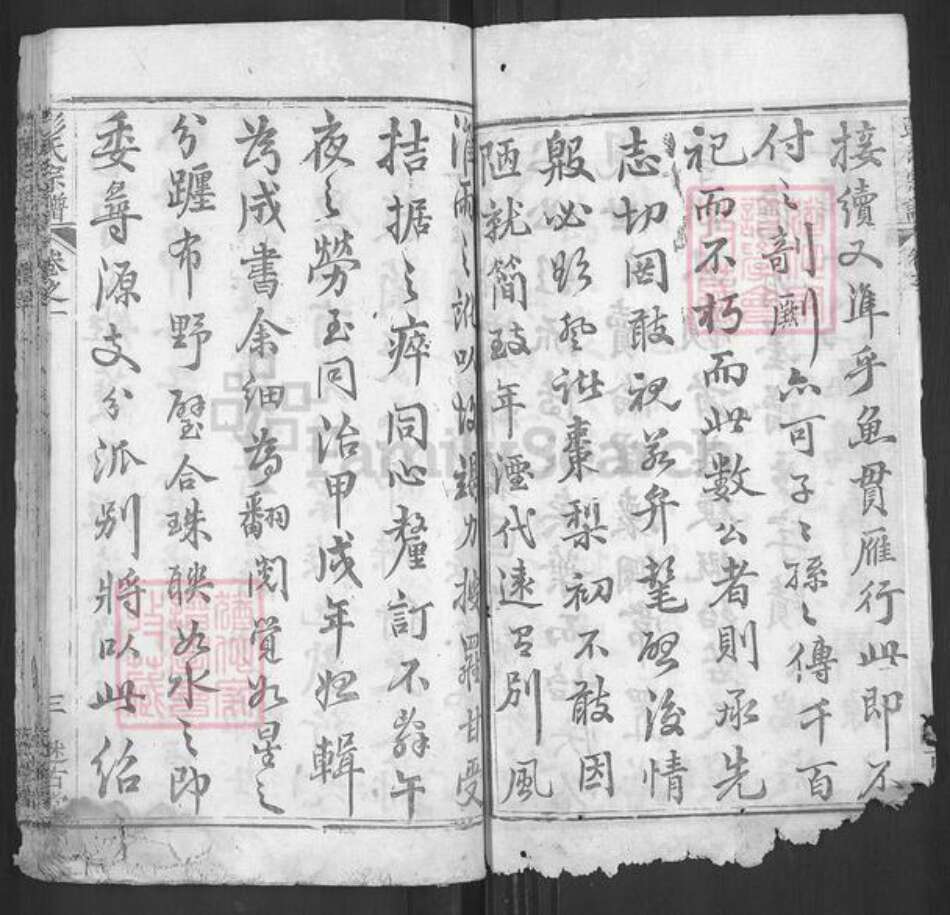 接續又準乎魚貫雁行此即不
付之剞劂亦可子子孫孫傳千百
祀而不朽而此數公者則承先
志切罔敢視若弁髦啓後情
殷必影堂誰棗梨初不敢因
陋就簡致年湮代遠召別風
淮雨之訛以故竭力搜羅甘受
拮据之瘁同心釐訂不辭午
夜之勞至同治甲戌年始輯
為成書余細為翻閱覺如星之
分躔布野璧合珠聯如水之即
委尋源支分派別將以此紹
彭氏宗譜
卷之一
三
FamilySearch